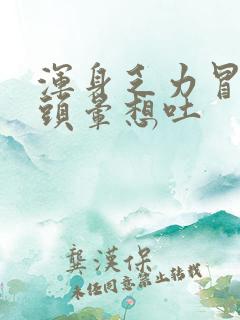 渾身乏力冒
頭暈想吐
龔漢保
未经同意禁止转载